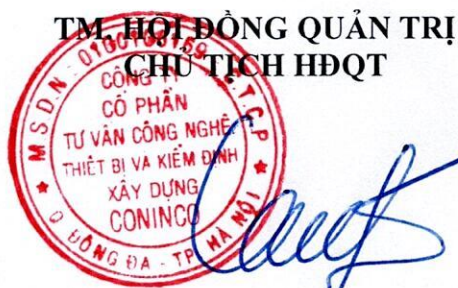 TM. HỘI ĐỒNG QUẢN TRỊ
CHỦ TỊCH HĐQT
M.S.D.N
C.T.C.P
CÔNG TY
CỔ PHẦN
TƯ VẤN CÔNG NGHỆ
THIẾT BỊ VÀ KIỂM ĐỊNH
XÂY DỰNG
CONINCO
Q ĐỐNG ĐA - TP. HÀ NỘI